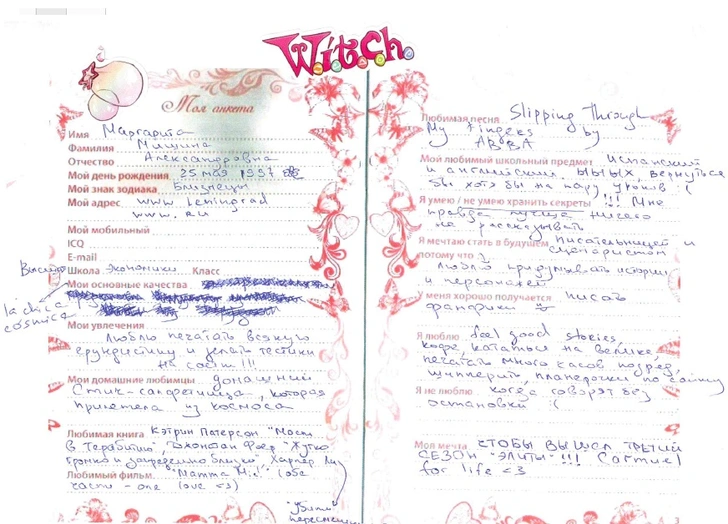 W.i.t.c.h.
Моя анкета
Имя Маргарита
Фамилия Мишина
Отчество Александровна
Мой день рождения 25 мая 1997
Мой знак зодиака Близнецы
Мой адрес www Leningrad
www.ru
Мой мобильный
ICQ
E-mail
Высшая Школа Экономики Класс
Мои основные качества
la chica
cósmica
Мои увлечения
Люблю печатать всякую
ерундистику и делать тестики
на сайт !!!
Мои домашние любимцы домашний
Стич-сапогетница, которая
прилетела из космоса
Любимая книга Кэтрин Патерсон "Мост
в Терабитию", Джонатан Фоер "Жутко
громко и запредельно близко", Харпер Ли
Любимый фильм "Mamma Mia!" (обе
части - one love <3)
"Убить
пересмешника"
Любимая песня Slipping Through
My Fingers by
ABBA
Мой любимый школьный предмет Испанский
и английский. ЫЫЫХ, вернуться
бы хотя бы на пару уроков :(
Я умею / не умею хранить секреты !!! Мне
правда лучше ничего
не рассказывать
Я мечтаю стать в будущем писательницей и
сценаристом
потому что
люблю придумывать истории
и персонажей
У меня хорошо получается писать
фанфики
Я люблю feel good stories,
кофе, кататься на велике,
печатать много часов подряд,
шипперить, планёрочки по сайту
Я не люблю когда говорят без
остановки :(
Моя мечта ЧТОБЫ ВЫШЕЛ ТРЕТИЙ
СЕЗОН "ЭЛИТЫ" !!! Carmuel
for life <3